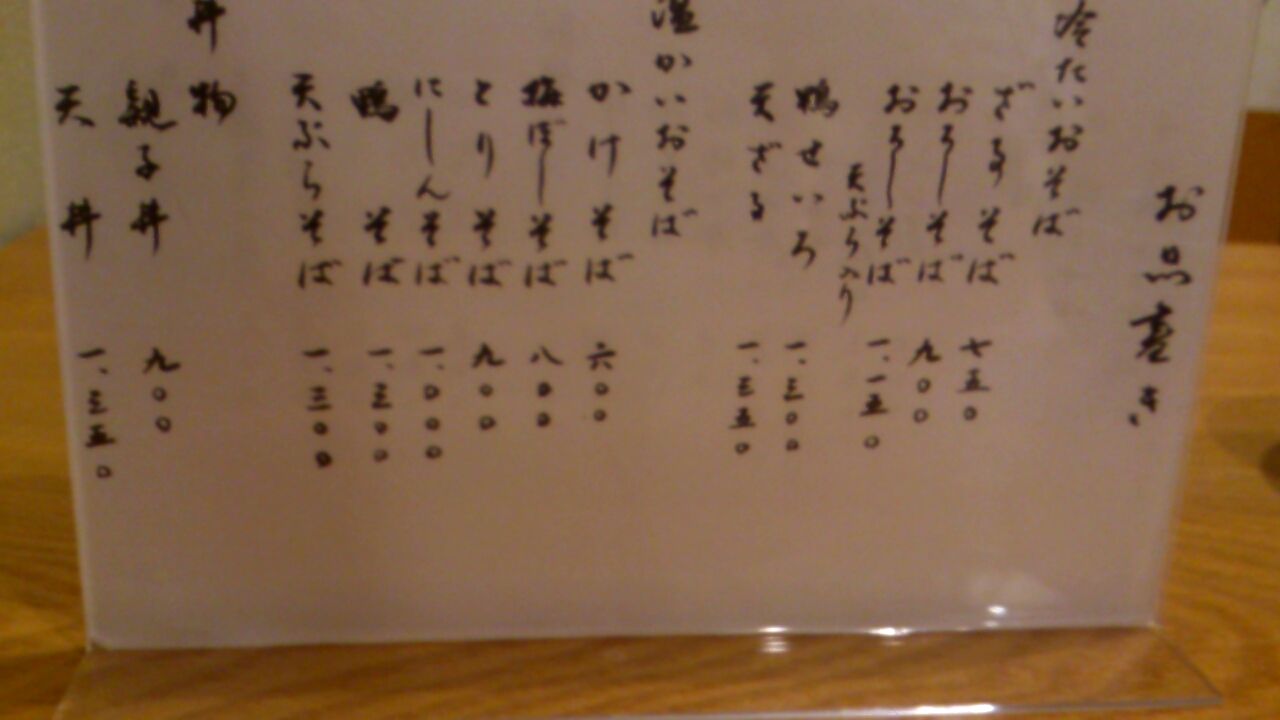 お品書き
冷たいおそば
ざるそば 七五〇
おろしそば 九〇〇
おろしそば 天ぷら入り 一、一五〇
鴨せいろ 一、三〇〇
天ざる 一、三五〇
温かいおそば
かけそば 六〇〇
梅ぼしそば 八〇〇
とりそば 九〇〇
にしんそば 一、〇〇〇
鴨そば 一、三〇〇
天ぷらそば 一、三〇〇
丼物
親子丼 九〇〇
天丼 一、三五〇